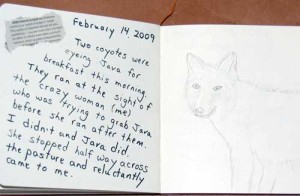 February 14, 2009
Two coyotes were
eyeing Java for
breakfast this morning.
They ran at the sight of
the crazy woman (me)
who was trying to grab Java
before she ran after them.
I didn't and Java did.
She stopped half way across
the pasture and reluctantly
came to me.